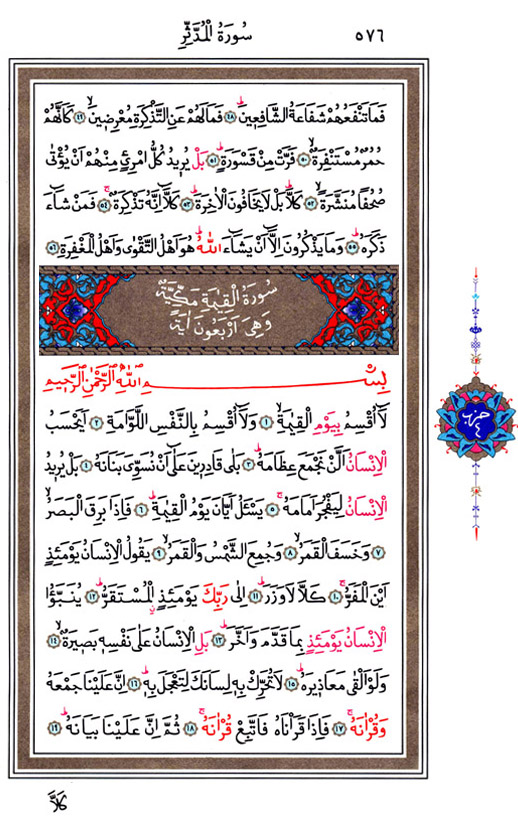 ٥٧٦ سُورَةُ الْمُدَّثِّرِ
فَمَا تَنْفَعُهُمْ شَفَاعَةُ الشَّافِعِينَۜ ﴿٤٨﴾ فَمَا لَهُمْ عَنِ التَّذْكِرَةِ مُعْرِضِينَۙ ﴿٤٩﴾ كَاَنَّهُمْ
حُمُرٌ مُسْتَنْفِرَةٌۙ ﴿٥٠﴾ فَرَّتْ مِنْ قَسْوَرَةٍۜ ﴿٥١﴾ بَلْ يُرِيدُ كُلُّ امْرِئٍ مِنْهُمْ اَنْ يُؤْتٰى
صُحُفًا مُنَشَّرَةًۙ ﴿٥٢﴾ كَلَّاۜ بَلْ لَا يَخَافُونَ الْاٰخِرَةَۜ ﴿٥٣﴾ كَلَّٓا اِنَّهُ تَذْكِرَةٌۚ ﴿٥٤﴾ فَمَنْ شَٓاءَ
ذَكَرَهُۜ ﴿٥٥﴾ وَمَا يَذْكُرُونَ اِلَّٓا اَنْ يَشَٓاءَ اللّٰهُۜ هُوَ اَهْلُ التَّقْوٰى وَاَهْلُ الْمَغْفِرَةِ ﴿٥٦﴾
سُورَةُ الْقِيٰمَةِ مَكِّيَّةٌ
وَهِيَ اَرْبَعُونَ اٰيَةً
بِسْمِ اللّٰهِ الرَّحْمٰنِ الرَّحِيمِ
لَٓا اُقْسِمُ بِيَوْمِ الْقِيٰمَةِۙ ﴿١﴾ وَلَٓا اُقْسِمُ بِالنَّفْسِ اللَّوَّامَةِ ﴿٢﴾ اَيَحْسَبُ
الْاِنْسَانُ اَلَّنْ نَجْمَعَ عِظَامَهُۜ ﴿٣﴾ بَلٰى قَادِرِينَ عَلٰٓى اَنْ نُسَوِّيَ بَنَانَهُ ﴿٤﴾ بَلْ يُرِيدُ
الْاِنْسَانُ لِيَفْجُرَ اَمَامَهُۚ ﴿٥﴾ يَسْـَٔلُ اَيَّانَ يَوْمُ الْقِيٰمَةِۜ ﴿٦﴾ فَاِذَا بَرِقَ الْبَصَرُۙ
﴿٧﴾ وَخَسَفَ الْقَمَرُۙ ﴿٨﴾ وَجُمِعَ الشَّمْسُ وَالْقَمَرُۙ ﴿٩﴾ يَقُولُ الْاِنْسَانُ يَوْمَئِذٍ
اَيْنَ الْمَفَرُّۚ ﴿١٠﴾ كَلَّا لَا وَزَرَۜ ﴿١١﴾ اِلٰى رَبِّكَ يَوْمَئِذٍ الْمُسْتَقَرُّۜ ﴿١٢﴾ يُنَبَّؤُا
الْاِنْسَانُ يَوْمَئِذٍ بِمَا قَدَّمَ وَاَخَّرَۜ ﴿١٣﴾ بَلِ الْاِنْسَانُ عَلٰى نَفْسِهِ بَصِيرَةٌۙ ﴿١٤﴾
وَلَوْ اَلْقٰى مَعَاذِيرَهُۜ ﴿١٥﴾ لَا تُحَرِّكْ بِهِ لِسَانَكَ لِتَعْجَلَ بِهِۜ ﴿١٦﴾ اِنَّ عَلَيْنَا جَمْعَهُ
وَقُرْاٰنَهُۚ ﴿١٧﴾ فَاِذَا قَرَأْنَاهُ فَاتَّبِعْ قُرْاٰنَهُۚ ﴿١٨﴾ ثُمَّ اِنَّ عَلَيْنَا بَيَانَهُۜ ﴿١٩﴾
حزب
٤
كَلَّا